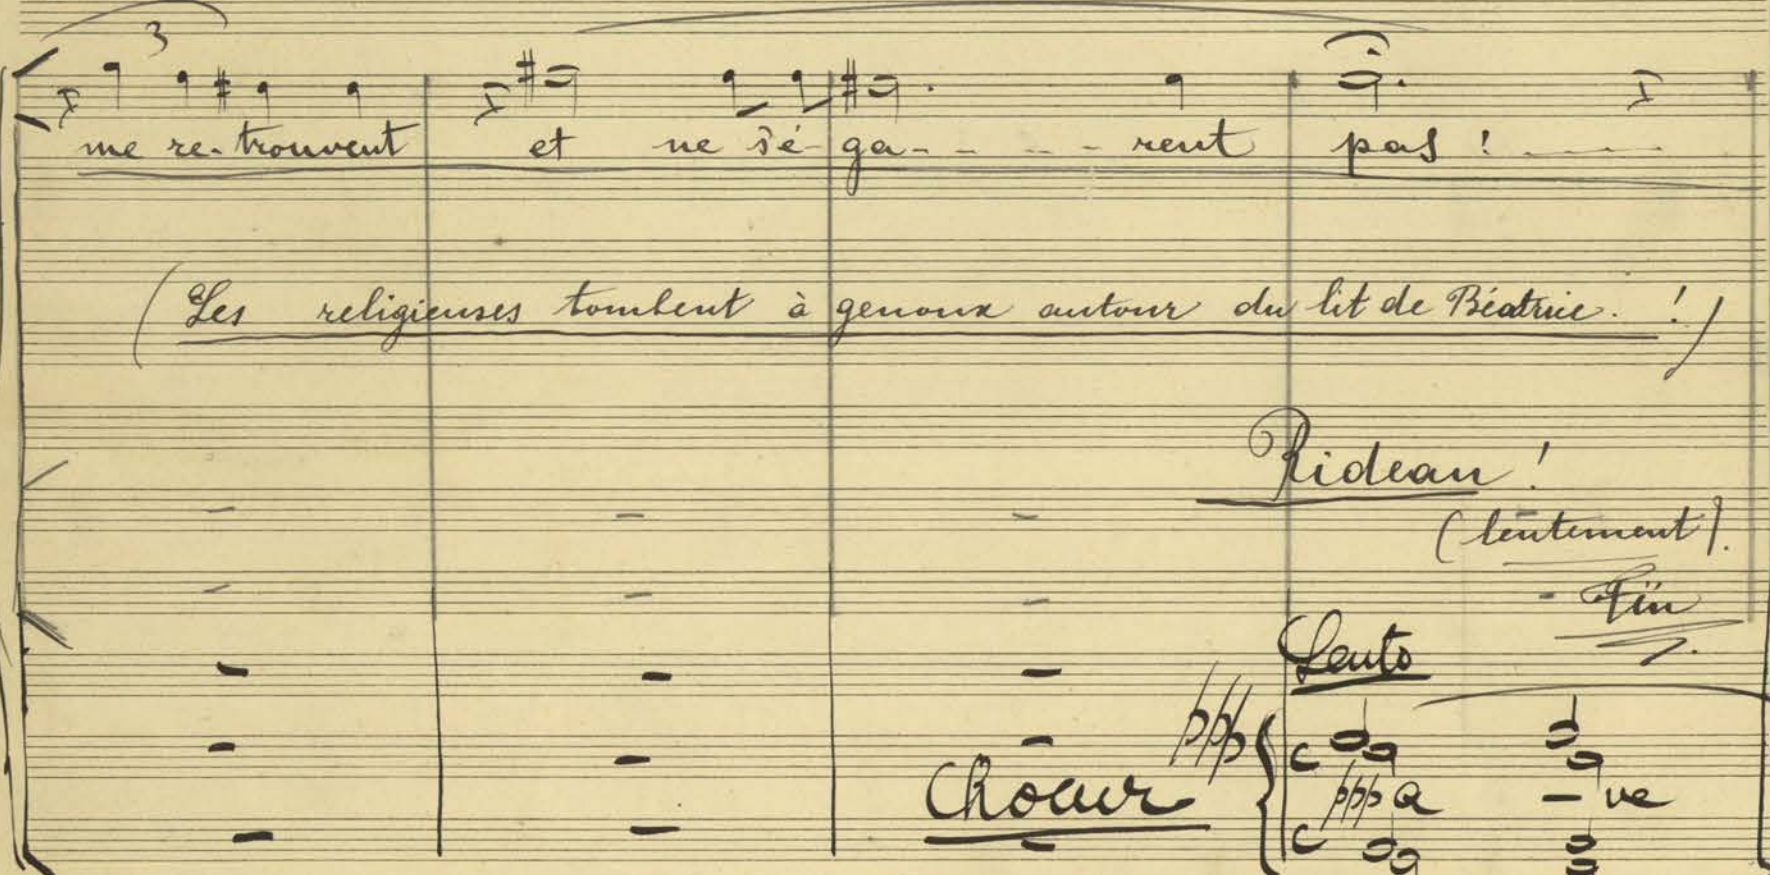 3
me re-trouvent et ne s'é-ga- - - - rent pas ! - - - -
(Les religieuses tombent à genoux autour du lit de Béatrice. !)
Rideau !
(lentement).
Fin
Lento
ppp
Choeur
ppp a - ve